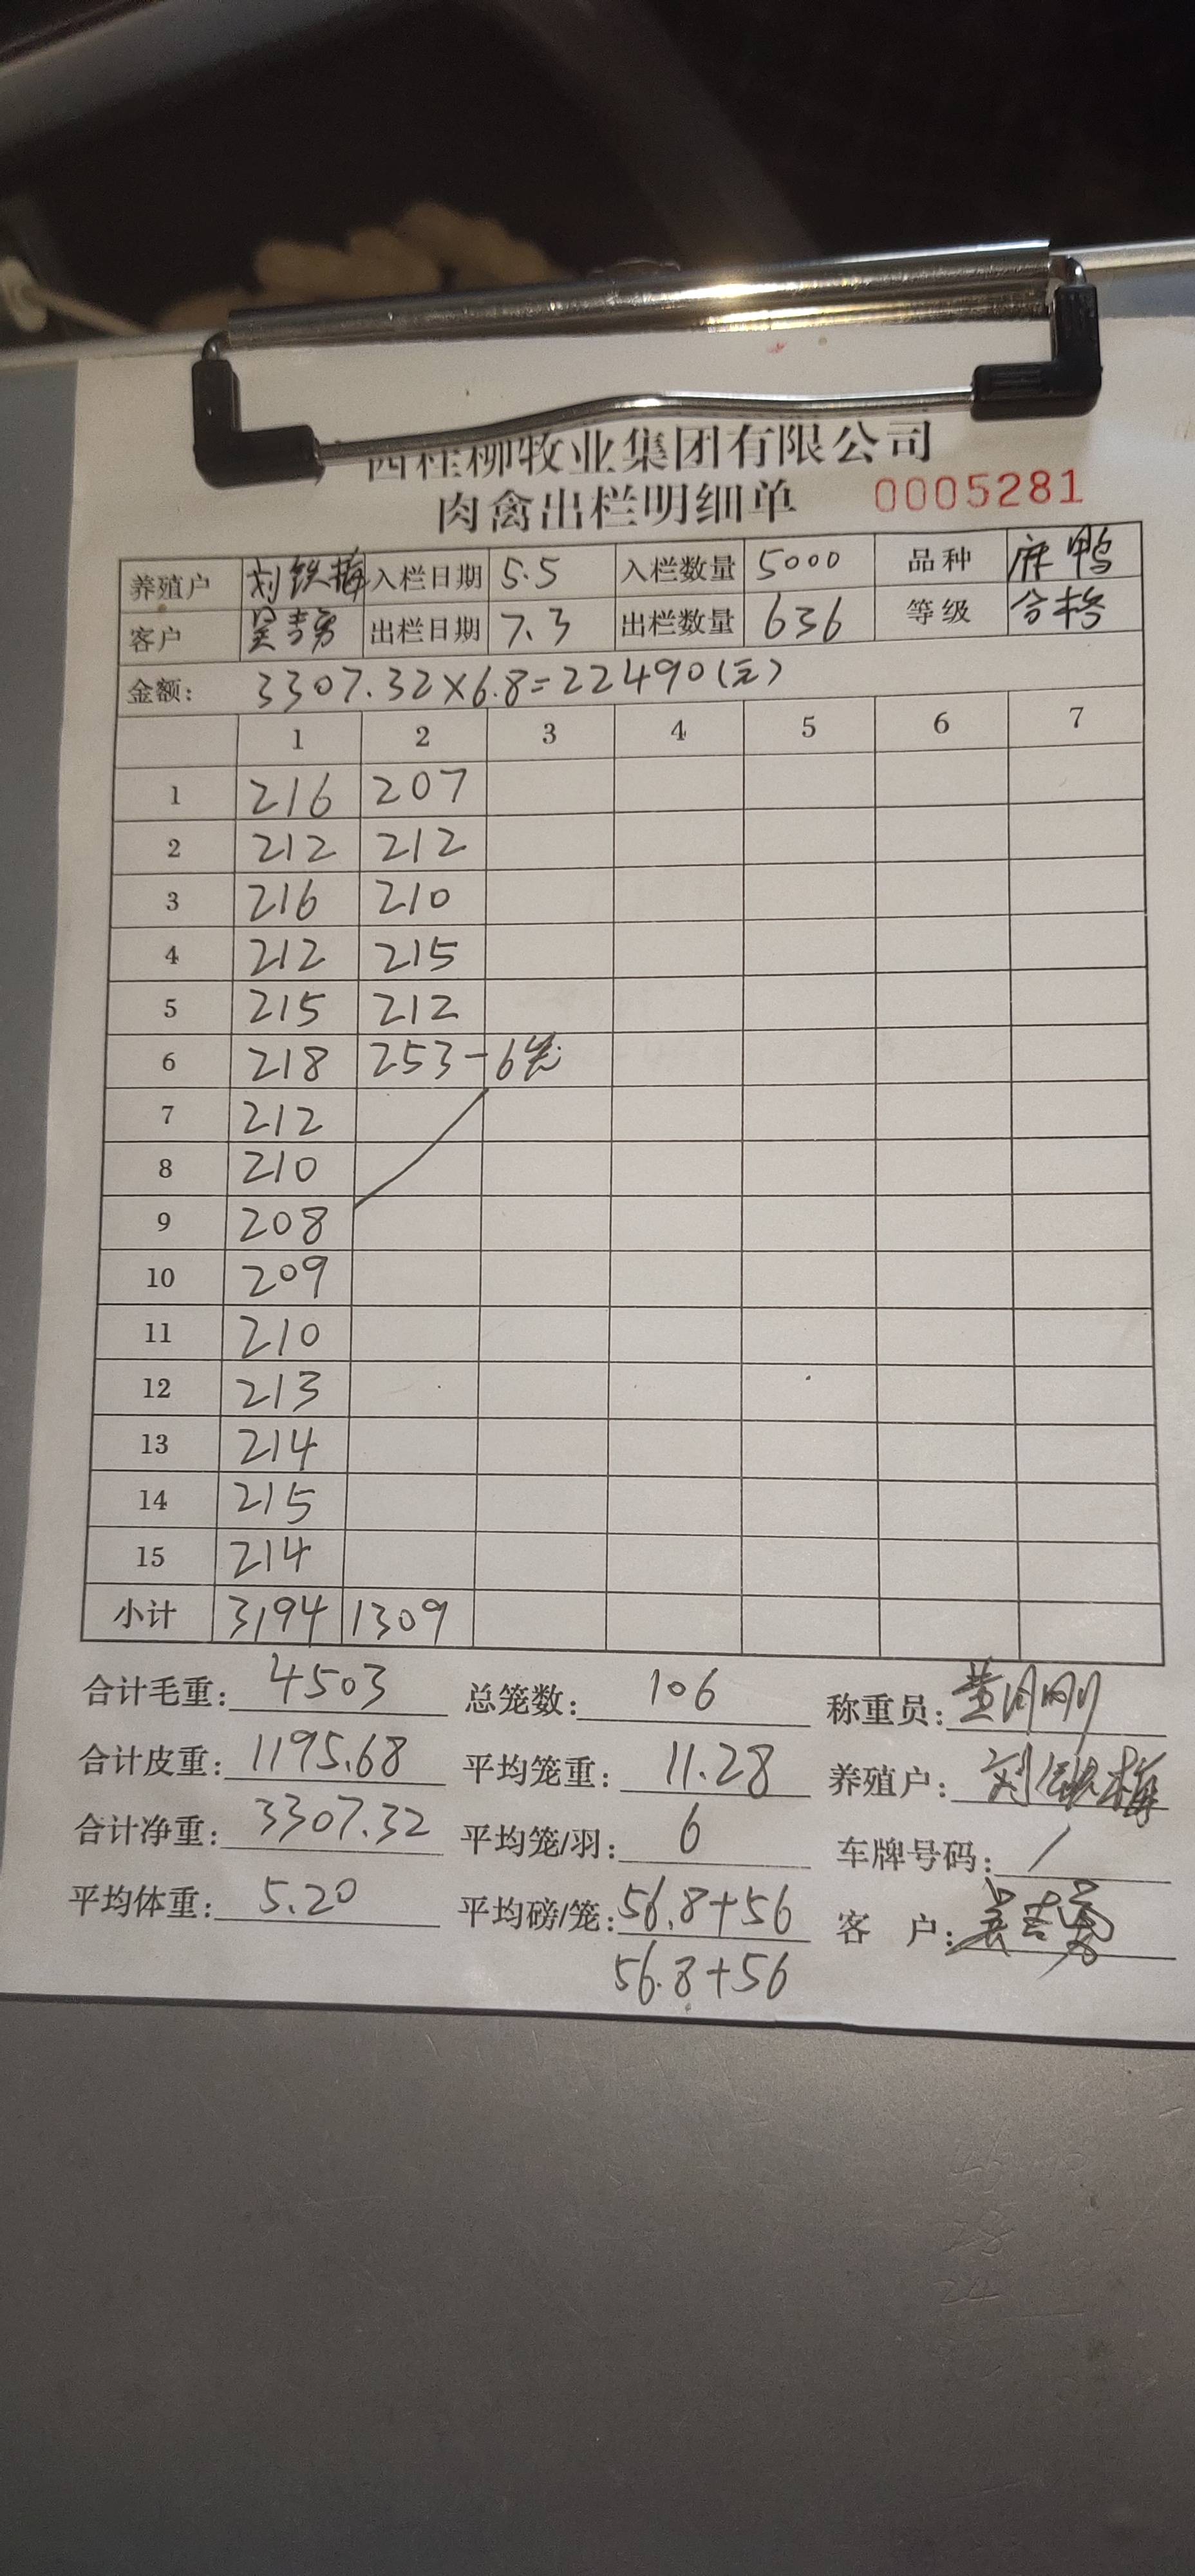 西桂柳牧业集团有限公司
肉禽出栏明细单 0005281
养殖户 刘铁梅 入栏日期 5.5 入栏数量 5000 品种 麻鸭
客户 吴吉勇 出栏日期 7.3 出栏数量 636 等级 合格
金额: 3307.32×6.8=22490(元)
1 2 3 4 5 6 7
1 216 207
2 212 212
3 216 210
4 212 215
5 215 212
6 218 253-6笼
7 212
8 210
9 208
10 209
11 210
12 213
13 214
14 215
15 214
小计 3194 1309
合计毛重: 4503 总笼数: 106 称重员: 黄刚
合计皮重: 1195.68 平均笼重: 11.28 养殖户: 刘铁梅
合计净重: 3307.32 平均笼/羽: 6 车牌号码: /
平均体重: 5.20 平均磅/笼: 56.8+56 客户: 吴吉勇
56.8+56